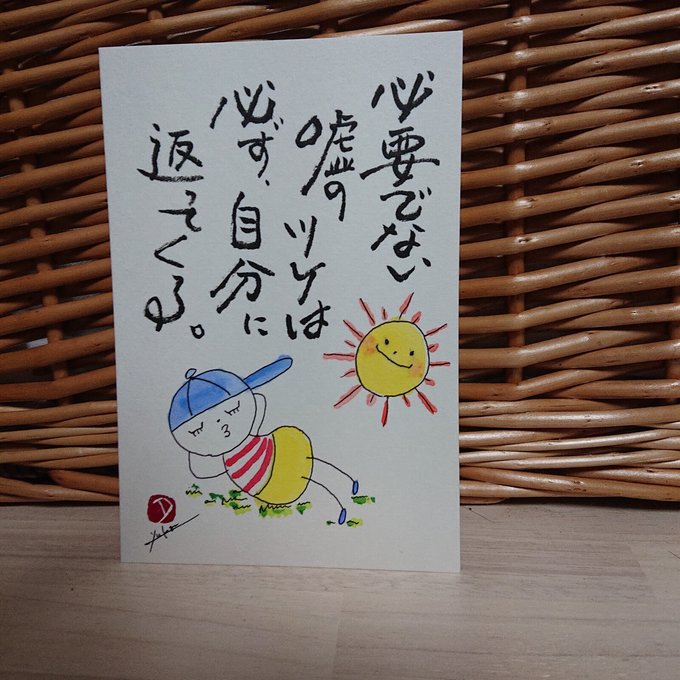 必要でない
嘘の
ツケは
必ず、自分に
返ってくる。